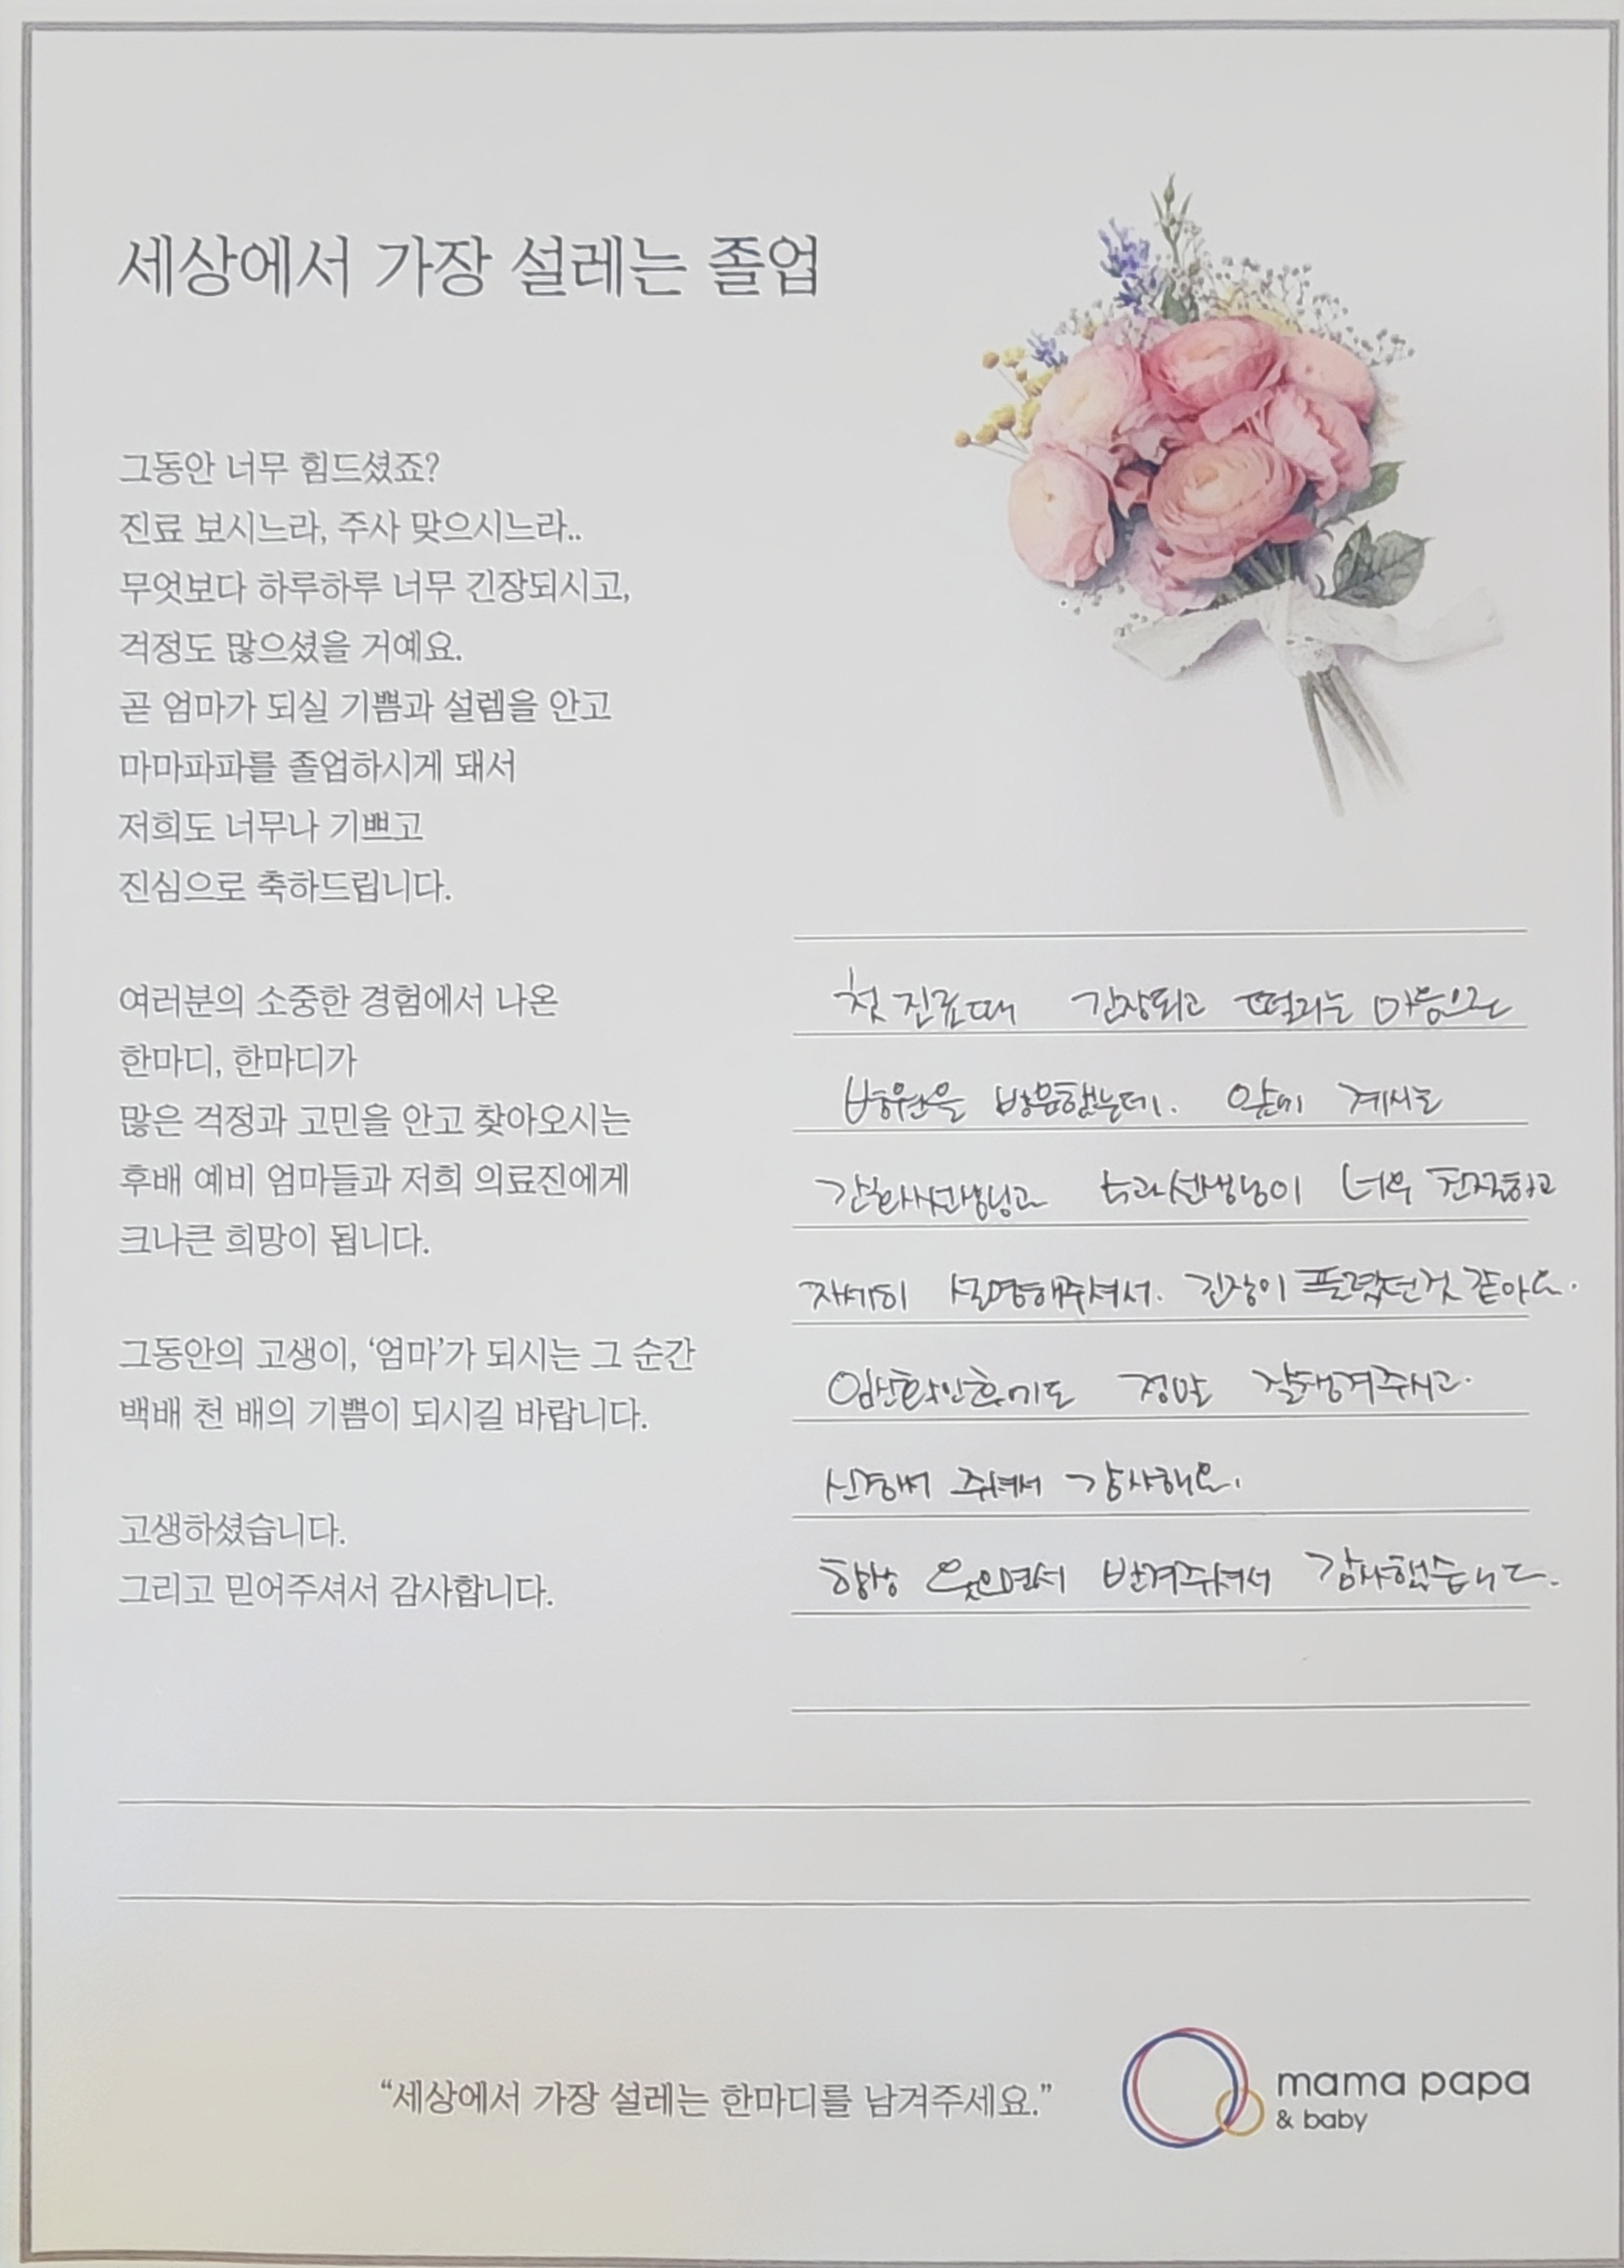 세상에서 가장 설레는 졸업
그동안 너무 힘드셨죠?
진료 보시느라, 주사 맞으시느라..
무엇보다 하루하루 너무 긴장되시고,
걱정도 많으셨을 거예요.
곧 엄마가 되실 기쁨과 설렘을 안고
마마파파를 졸업하시게 돼서
저희도 너무나 기쁘고
진심으로 축하드립니다.
여러분의 소중한 경험에서 나온
한마디, 한마디가
많은 걱정과 고민을 안고 찾아오시는
후배 예비 엄마들과 저희 의료진에게
크나큰 희망이 됩니다.
그동안의 고생이, ‘엄마’가 되시는 그 순간
백배 천 배의 기쁨이 되시길 바랍니다.
고생하셨습니다.
그리고 믿어주셔서 감사합니다.
첫 진료때 긴장되고 떨리는 마음으로
병원을 방문했는데. 앞에 계시는
간호사선생님과 너무 친절하고
자세히 설명해주셔서. 긴장이 풀렸던것 같아요.
임신확인후에도 정말 잘챙겨주시고.
신경써 주셔서 감사해요.
항상 웃으면서 반겨주셔서 감사했습니다.
“세상에서 가장 설레는 한마디를 남겨주세요.”
mama papa
& baby